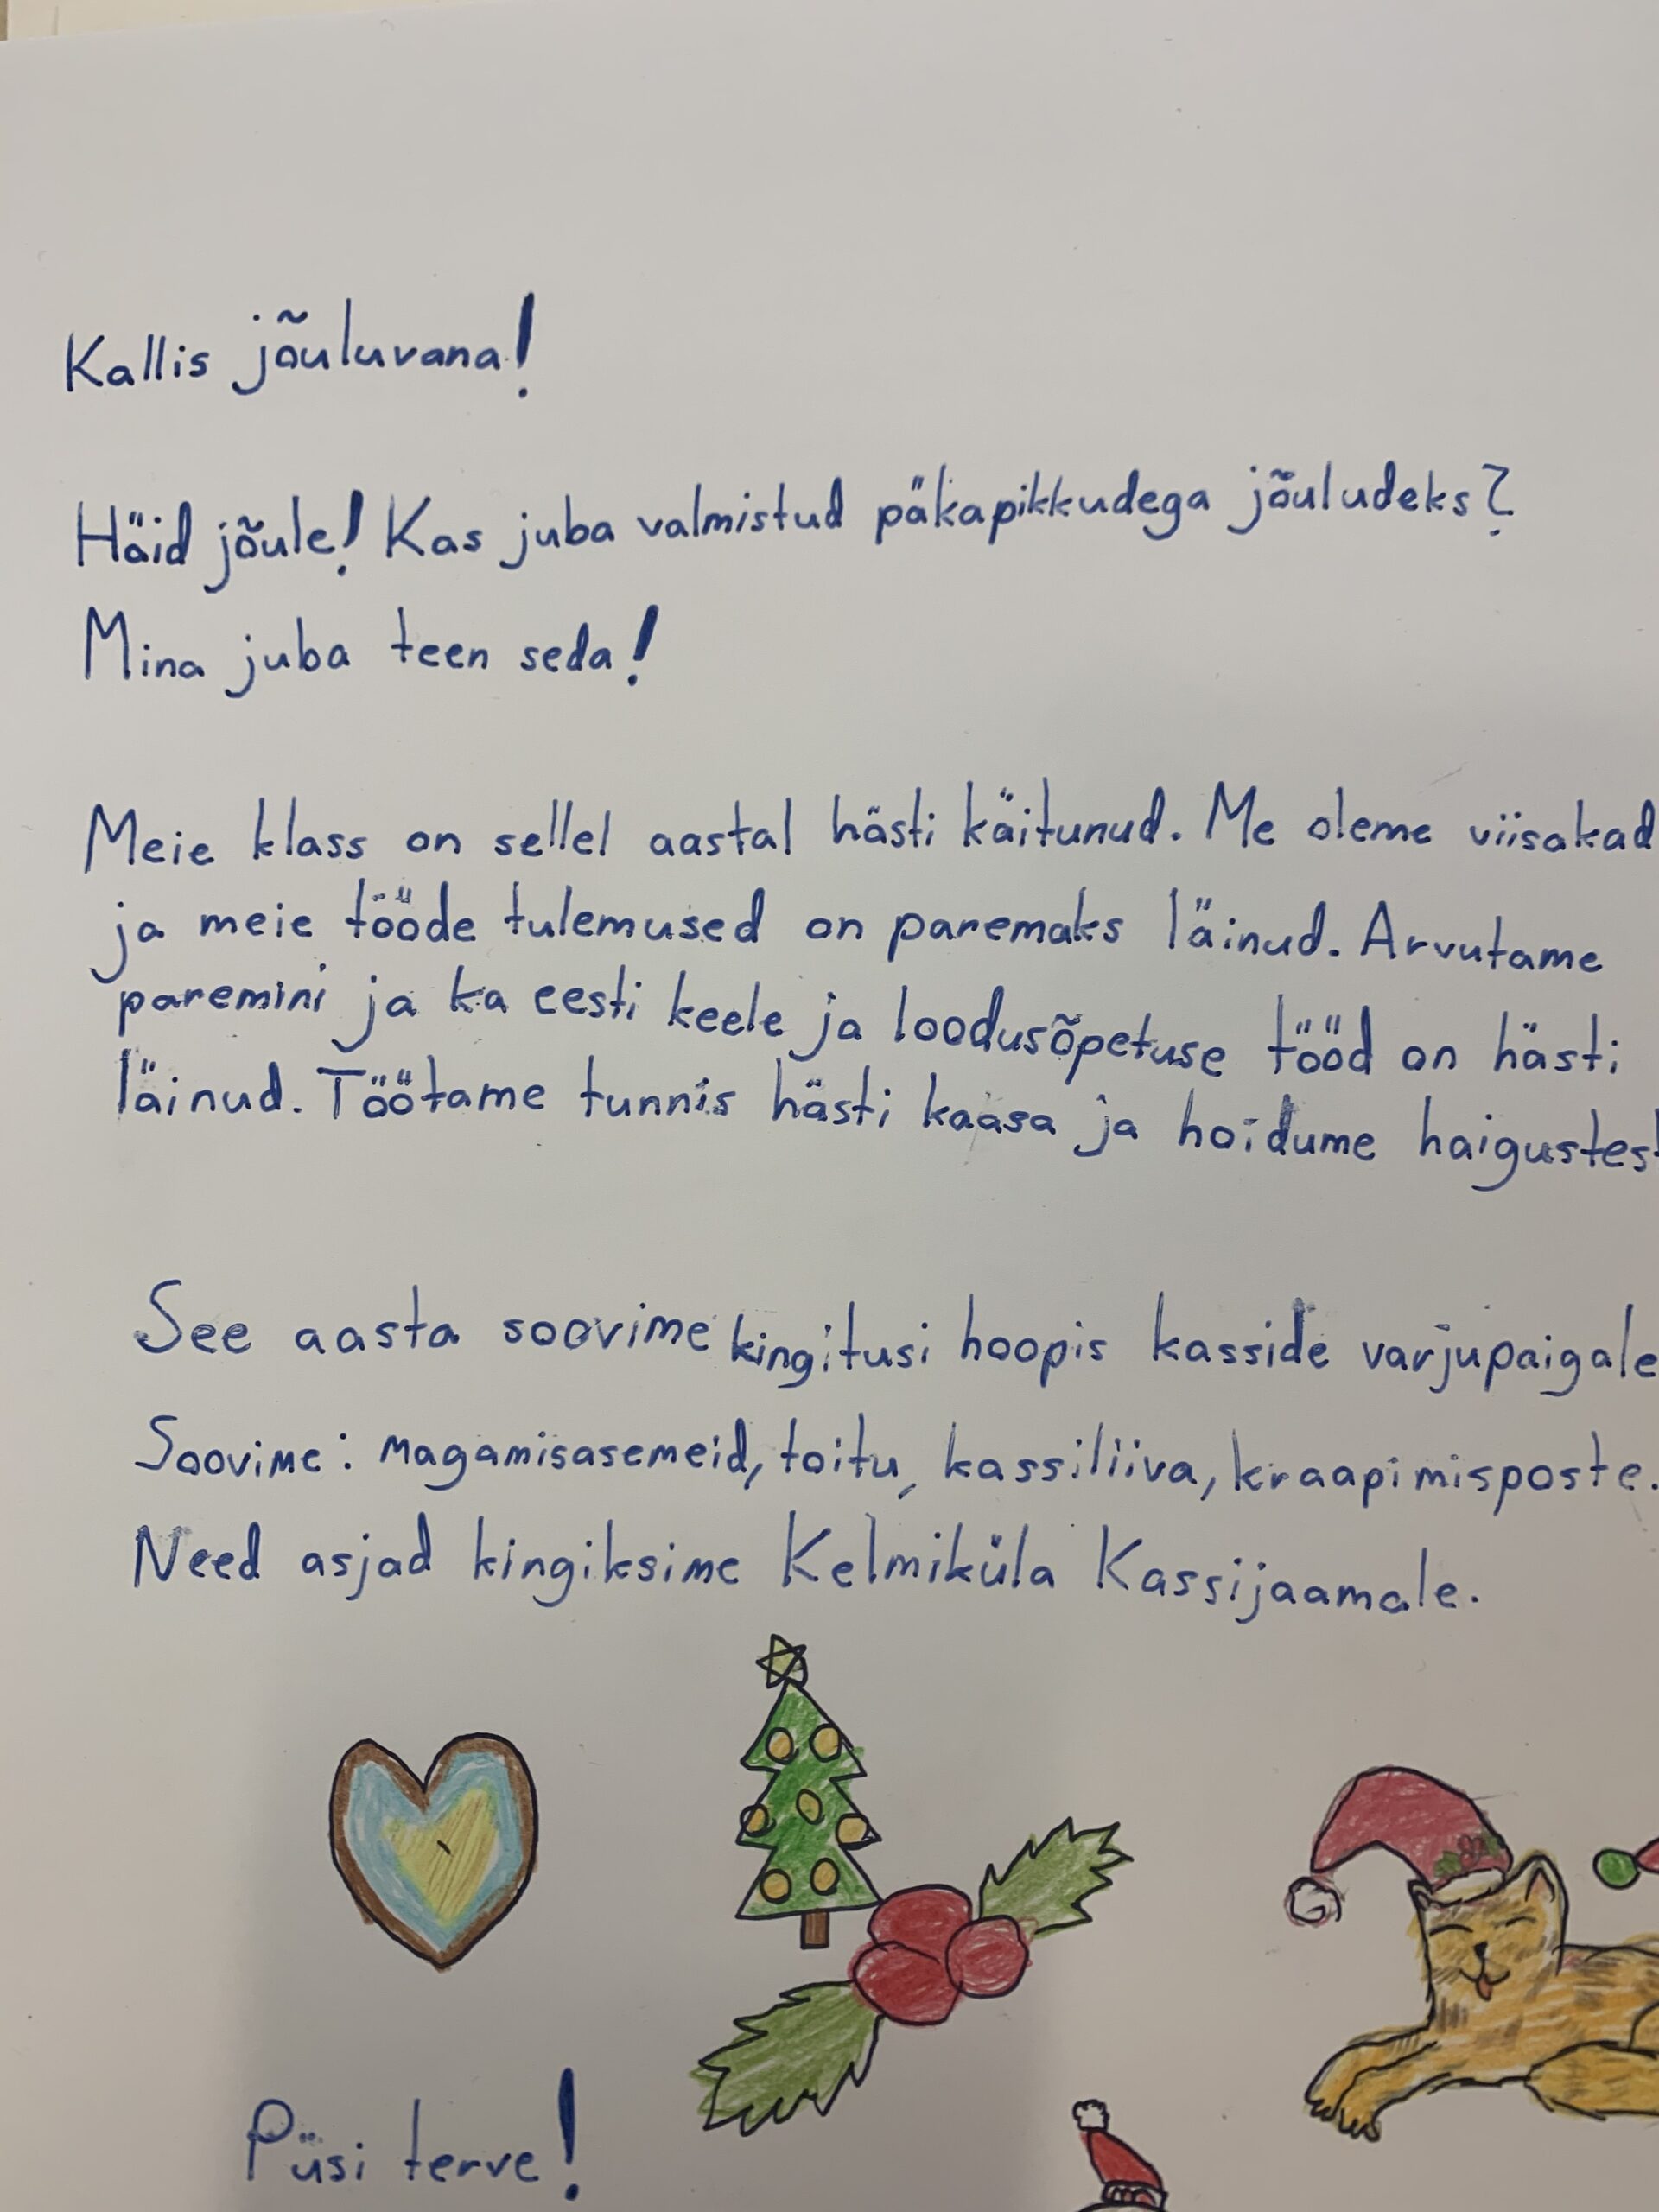 Kallis jõuluvana!
Häid jõule! Kas juba valmistud päkapikkudega jõuludeks?
Mina juba teen seda!
Meie klass on sellel aastal hästi käitunud. Me oleme viisakad
ja meie tööde tulemused on paremaks läinud. Arvutame
paremini ja ka eesti keele ja loodusõpetuse tööd on hästi
läinud. Töötame tunnis hästi kaasa ja hoidume haigustest
See aasta soovime kingitusi hoopis kasside varjupaigale
Soovime: magamisasemeid, toitu, kassiliiva, kraapimisposte.
Need asjad kingiksime Kelmiküla Kassijaamale.
Püsi terve!